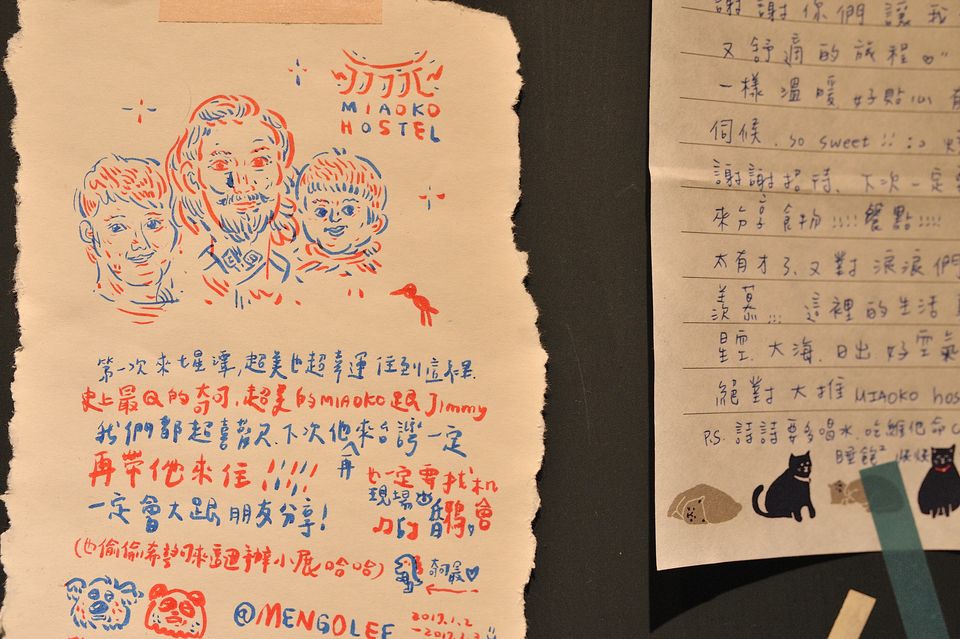 MIAOKO
HOSTEL
第一次來七星潭,超美也超幸運住到這裡.
史上最Q的奇可,超美的MIAOKO跟Jimmy
我們都超喜歡尺.下次他來台灣一定
再帶他來住!!!!!
再
也一定要找机會
現場
一定會大跟朋友分享!
(也偷偷希望可來這辦小展哈哈)
奇可最♡
@MENGOLEE
2017.1.2
-2017.1.3
謝謝你們讓我
又舒適的旅程♡"
一樣溫暖 好貼心
伺候. so sweet!! :)
謝謝招待. 下次一定
來分享食物!!!! 餐點!!!!
太有才了. 又對 浪浪們
羨慕... 這裡的生活
星空. 大海. 日出 好空氣
絕對大推 MIAOKO hos
P.S. 詩詩要多喝水. 吃維他命C
睡飽